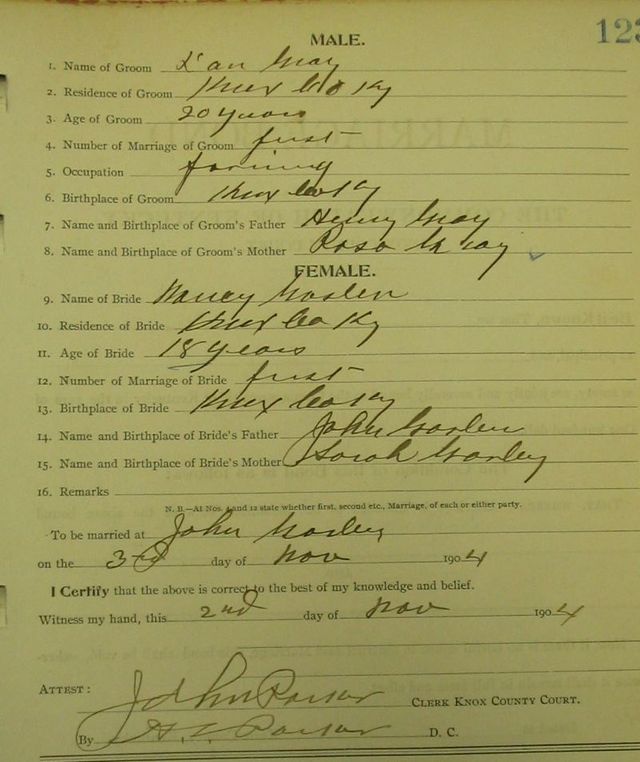 123
MALE.
1. Name of Groom
2. Residence of Groom Knox Co Ky
3. Age of Groom 20 years
4. Number of Marriage of Groom first
5. Occupation farming
6. Birthplace of Groom Knox Co Ky
7. Name and Birthplace of Groom's Father Henry Gray
8. Name and Birthplace of Groom's Mother Rosa Gray
FEMALE.
9. Name of Bride Nancy
10. Residence of Bride Knox Co Ky
11. Age of Bride 18 years
12. Number of Marriage of Bride first
13. Birthplace of Bride Knox Co Ky
14. Name and Birthplace of Bride's Father John
15. Name and Birthplace of Bride's Mother Sarah
16. Remarks
N. B.—At Nos. 4 and 12 state whether first, second etc., Marriage, of each or either party.
To be married at John
on the 3rd day of Nov 1904
I Certify that the above is correct to the best of my knowledge and belief.
Witness my hand, this 2nd day of Nov 1904
ATTEST: John Parker CLERK KNOX COUNTY COURT.
By Parker D. C.